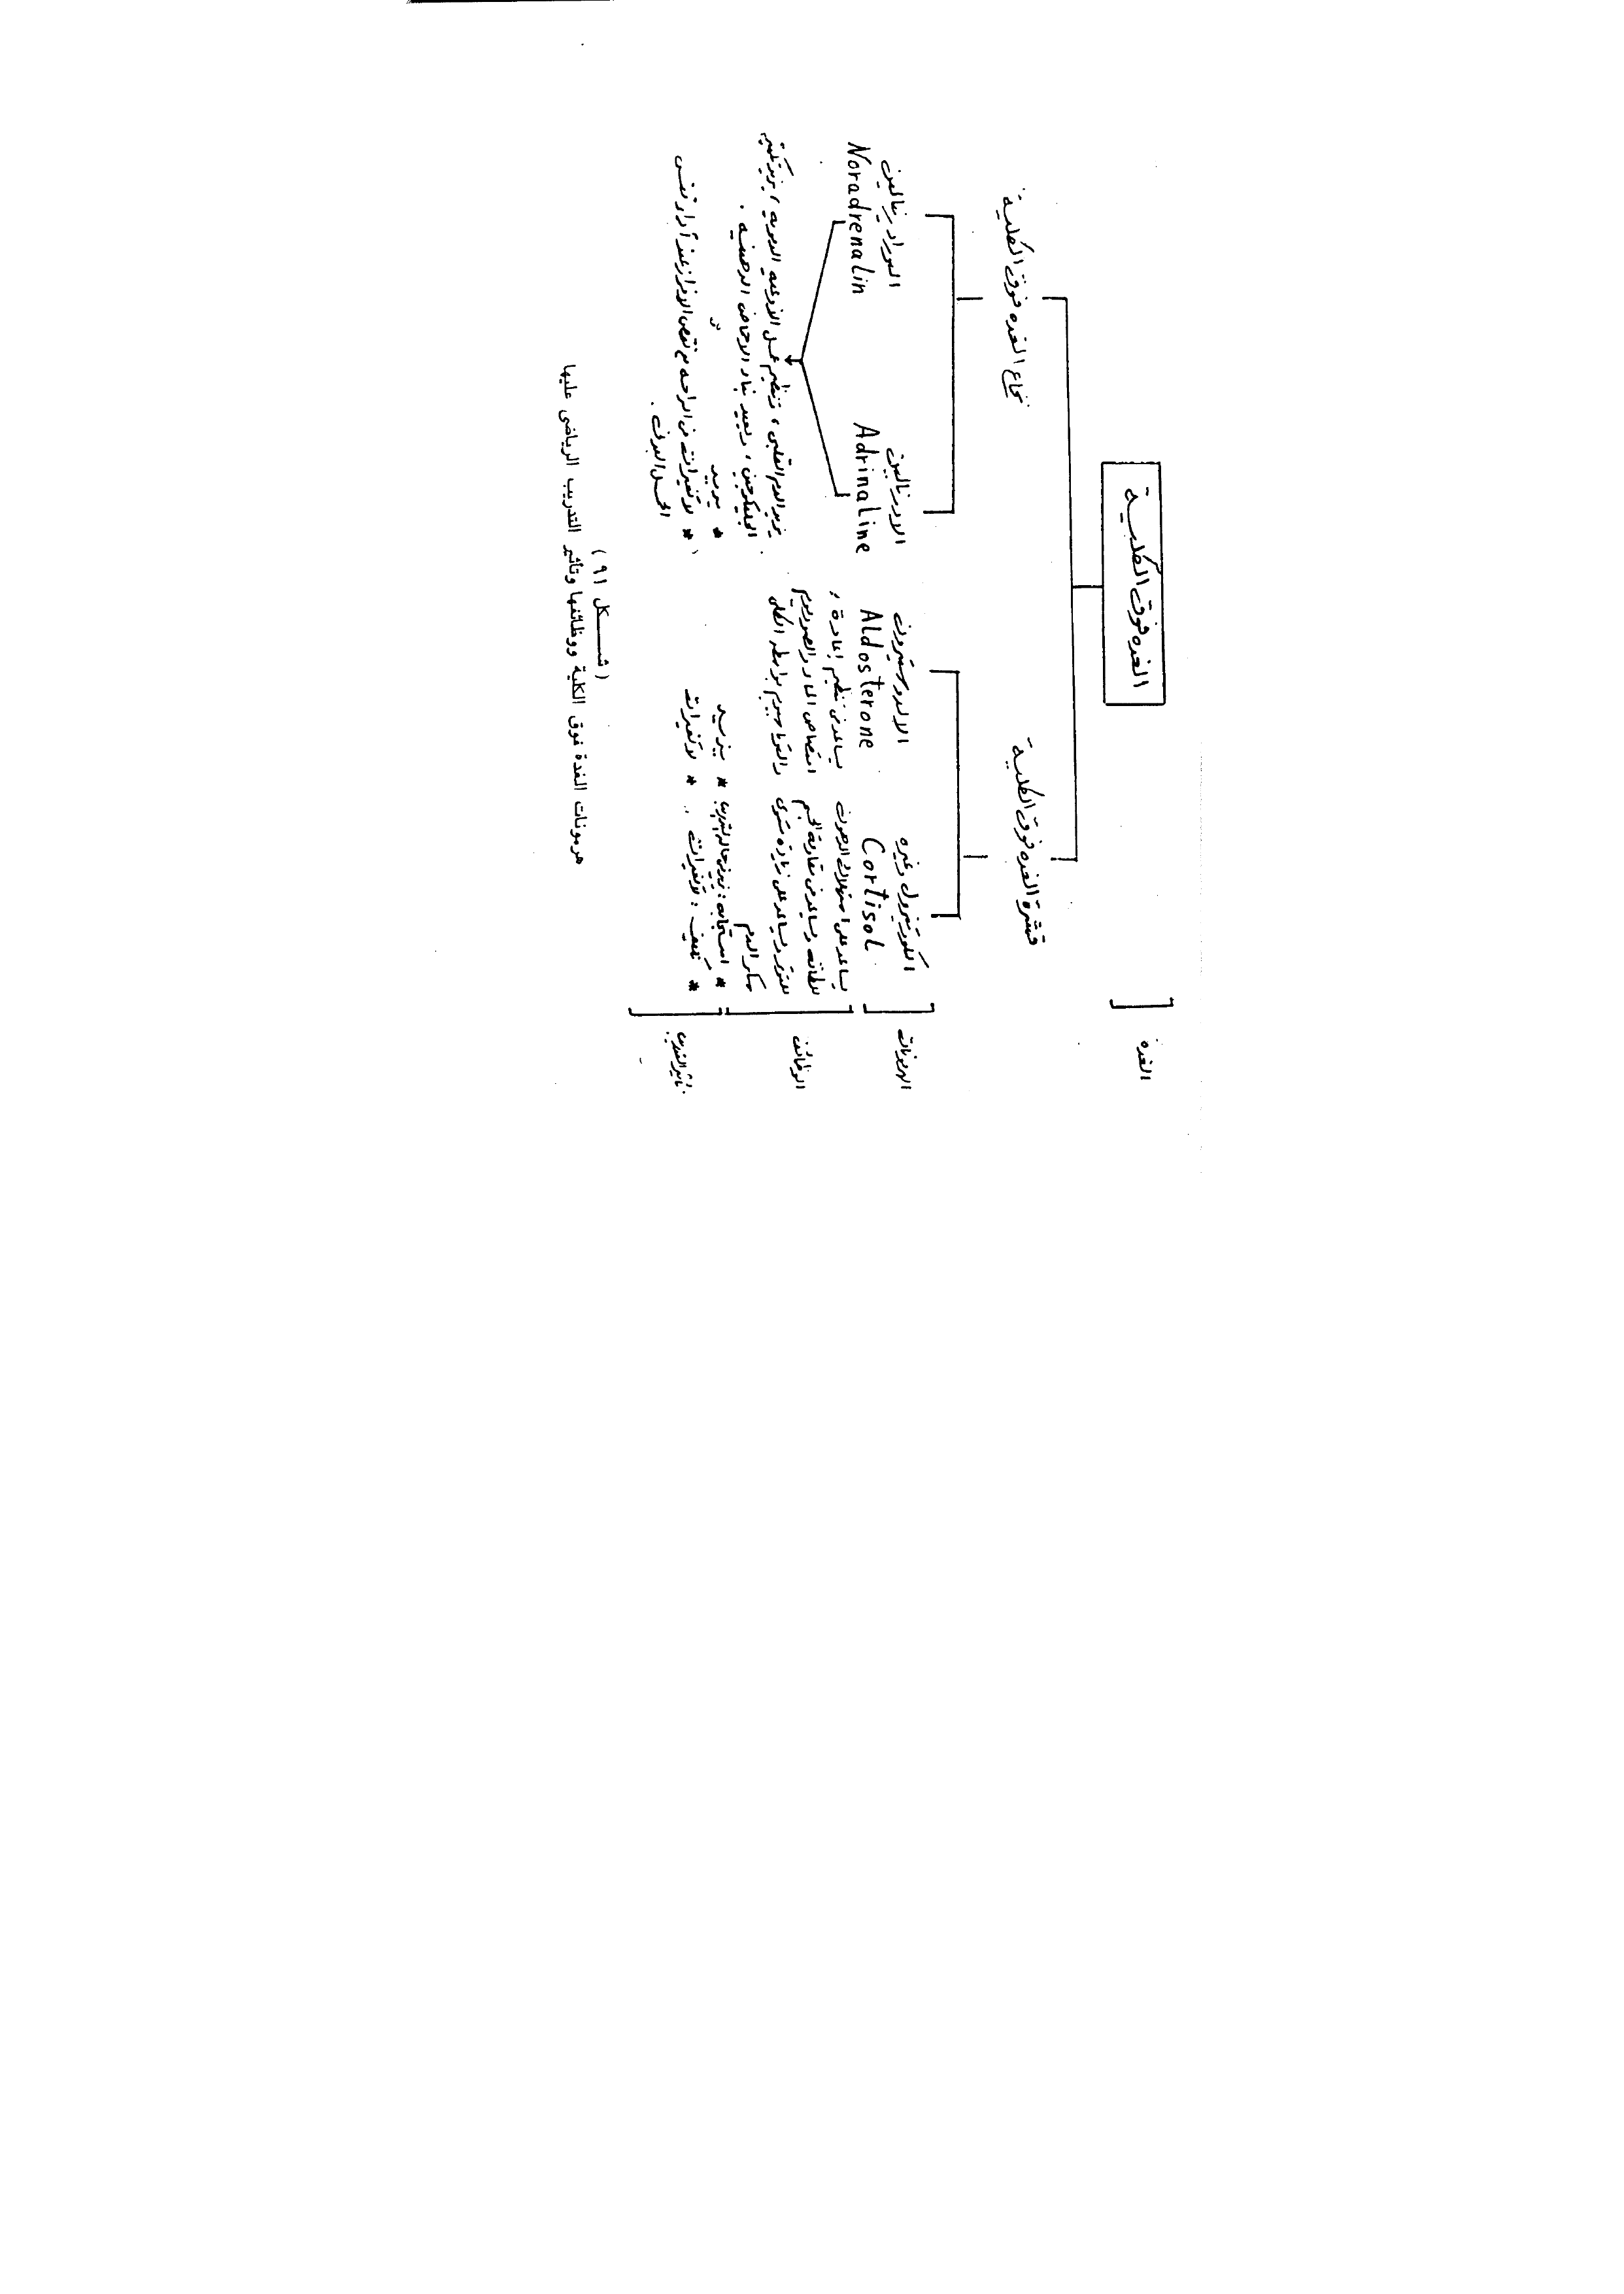 الغده
الغده فوق الكلية
قشرة الغده فوق الكلية
نخاع الغده فوق الكلية
الهرمونات
الكورتيزول وغيره
Cortisol
الالدوستيرون
Aldosterone
الادرنالين
Adrinaline
النورادرينالين
Noradrenalin
الوظائف
يساعد على استهلاك الدهون
للطاقه ويساعد فى مقاومة الجسم
للتوتر ويساعد على زيادة مستوى
سكر الدم
يساعد فى تنظيم إعادة
امتصاص الماء والصوديوم
والبوتاسيوم بواسطه الكلى
يزيد الدم القلبى، وتنظيم عمل الأوعيه الدمويه، يزيد تكسير
الجليكوجين، ويعيد بناء الاحماض الدهنيه.
تأثير التدريب
* استجابه: يزيد حالة التدريب
* تكيف: لا تغيرات
* يزيد
* لا تغيرات
* يزيد
* لا تغيرات فى الراحه مع نقص الافراز عند أداء نفس
الحمل البدنى.
(شكل ٩١)
هرمونات الغدة فوق الكلية ووظائفها وتأثير التدريب الرياضى عليها